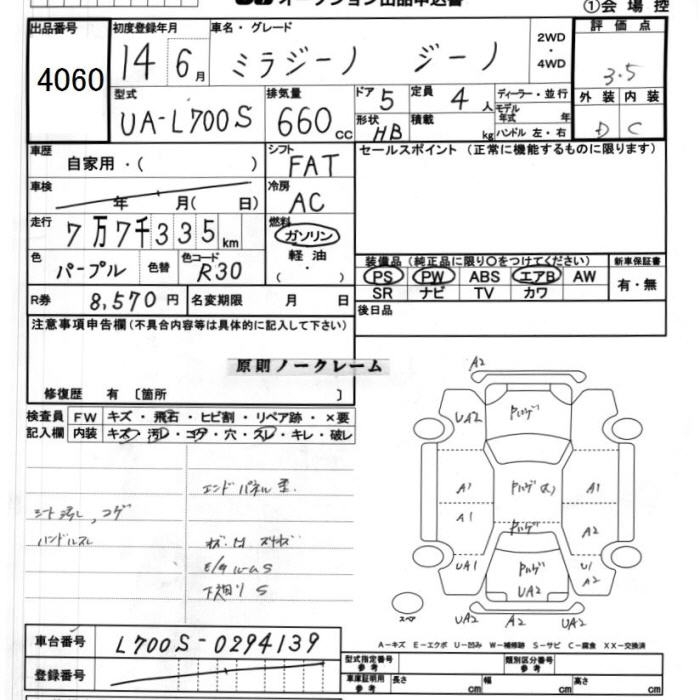 オークション出品申込書
①会場控
出品番号 4060
初度登録年月 14年 6月
車名・グレード ミラジーノ ジーノ
2WD・4WD
評価点 3.5
型式 UA-L700S
排気量 660cc
ドア 5
形状 HB
定員 4人
積載 kg
ディーラー・並行
モデル年式 年
ハンドル 左・右
外装 D 内装 C
車歴 自家用・( )
シフト FAT
セールスポイント (正常に機能するものに限ります)
車検 年 月( 日)
冷房 AC
走行 7万7千335km
燃料 ガソリン 軽油 ( ・ )
色 パープル 色替 色コード R30
装備品(純正品に限り○をつけてください)
PS PW ABS エアB AW
SR ナビ TV カワ
新車保証書 有・無
R券 8,570円 名変期限 月 日
後日品
注意事項申告欄(不具合内容等は具体的に記入して下さい)
原則ノークレーム
修復歴 有 〔箇所 〕
検査員記入欄
FW キズ・飛石・ヒビ割・リペア跡・×要
内装 キズ・汚レ・コゲ・穴・スレ・キレ・破レ
エンドパネル
シート汚レ、コゲ
ハンドルスレ
下廻り S
A2
UA2
A1
A1
A1
A2
UA1
U1
A2
UA2
UA2 A2 UA2
スペア
A-キズ E-エクボ U-凹み W-補修跡 S-サビ C-腐食 XX-交換済
車台番号 L700S-0294139
登録番号
型式指定番号 参考 類別区分番号 参考
車庫証明用 参考 長さ cm 幅 cm 高さ cm